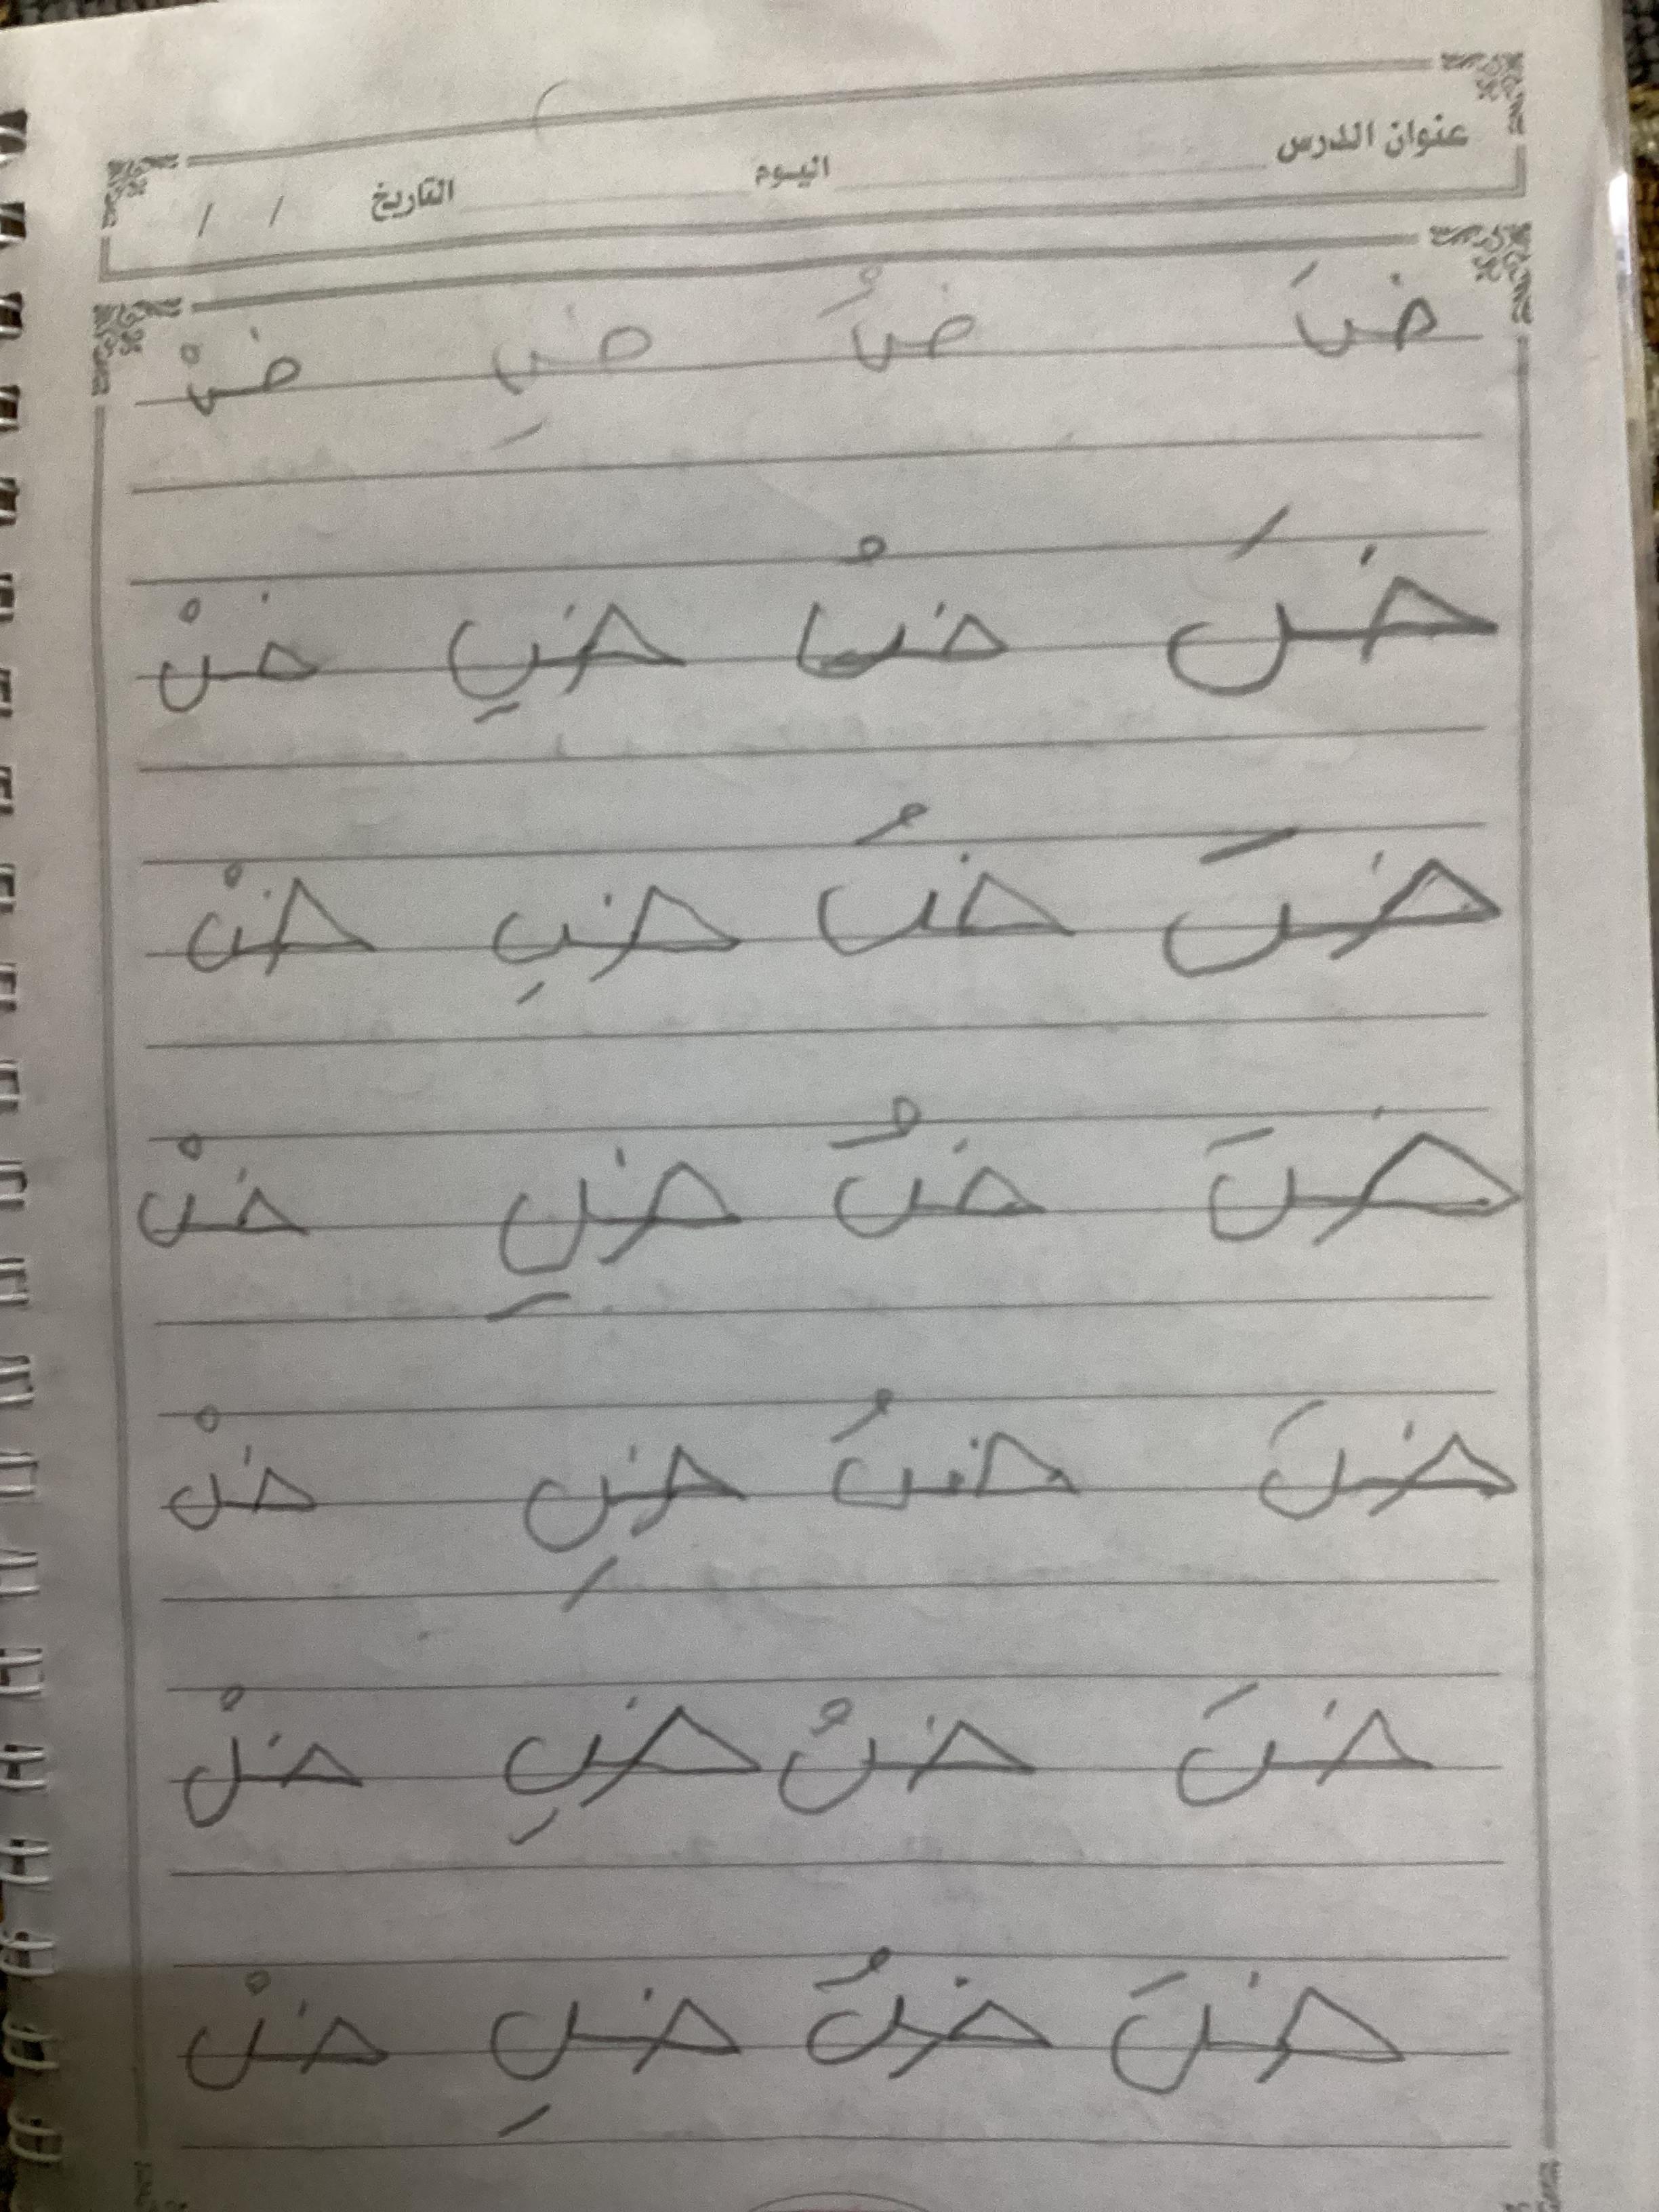 عنوان الدرس اليوم التاريخ / /
ضَ ضُ ضِ ضْ
ضَ ضُ ضِ ضْ
ضَ ضُ ضِ ضْ
ضَ ضُ ضِ ضْ
ضَ ضُ ضِ ضْ
ضَ ضُ ضِ ضْ
ضَ ضُ ضِ ضْ